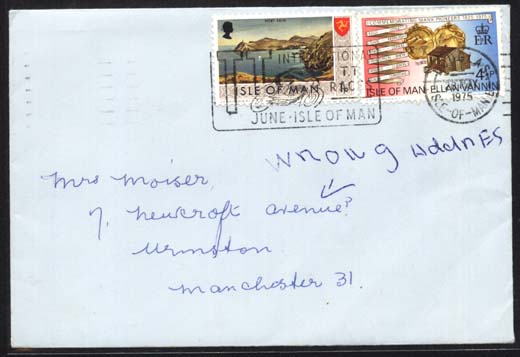 PORT ERIN
ISLE OF MAN
COMMEMORATING MANX PIONEERS 1825-1975
ISLE OF MAN·ELLAN VANNIN
4½P
INTERNATIONAL
T.T.
JUNE·ISLE OF MAN
1975
ISLE-OF-MAN
wrong AddrES
Mrs Moiser,
7, Newcroft avenue?
Urmston
Manchester 31.